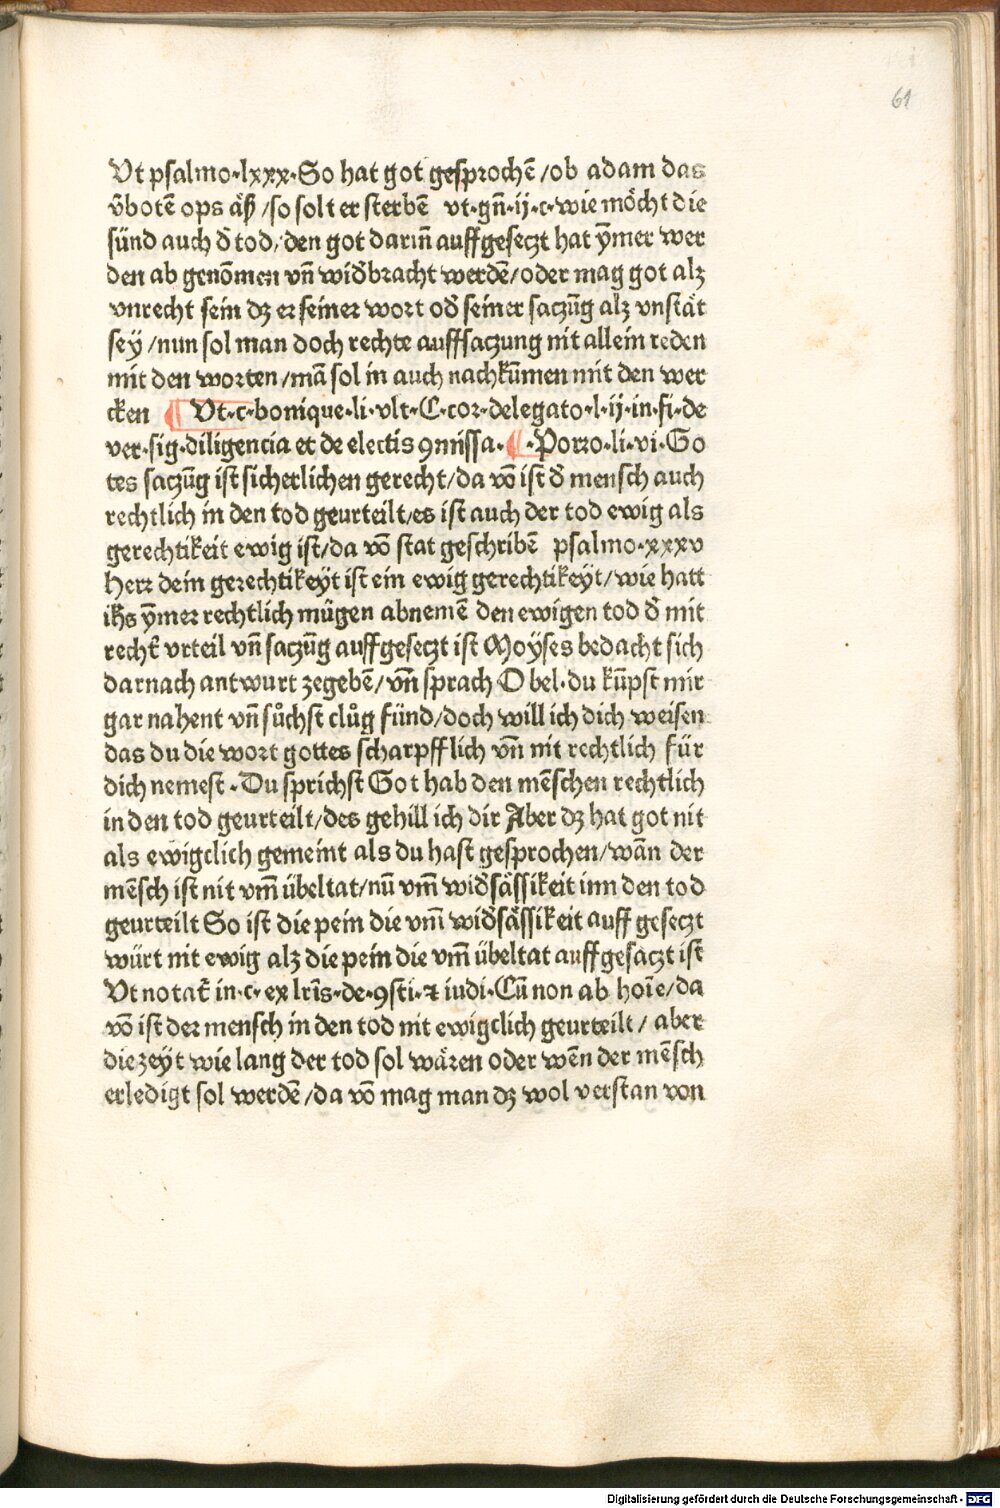 61
Vt psalmo·lxxx·So hat got gesprochē/ob adam das
v̄botē ops äß/so solt er sterbē vt·gn̄·ij·c·wie möcht die
sünd auch d̄ tod/den got darin̄ auffgeseczt hat ym̄er wer
den ab genōmen vn̄ wid̄bracht werdē/oder mag got alz
vnrecht sein dz er seiner wort od̄ seiner saczūg alz vnstät
sey/nun sol man doch rechte auffsaczung nit allein reden
mit den worten/mā sol in auch nachkūmen mit den wer
cken ¶ Vt·c·bonique·li·vlt·C·cor·delegato·l·ij·in·fi·de
ver·sig·diligencia et de electis ꝯmissa·¶·Porro·li·vi·Go
tes saczūg ist sicherlichen gerecht/da vō ist d̄ mensch auch
rechtlich in den tod geurteilt/es ist auch der tod ewig als
gerechtikeit ewig ist/da vō stat geschribē psalmo·xxxv
Herr dein gerechtikeyt ist ein ewig gerechtikeyt/wie hatt
ihs ym̄er rechtlich mügen abnemē den ewigen tod d̄ mit
recht̄ vrteil vn̄ saczūg auffgeseczt ist Moyses bedacht sich
darnach antwurt zegebē/vn̄ sprach O bel·du kūpst mir
gar nahent vn̄ sůchst clůg fünd/doch will ich dich weisen
das du die wort gottes scharpfflich vn̄ nit rechtlich für
dich nemest·Du sprichst Got hab den mēschen rechtlich
in den tod geurteilt/des gehill ich dir Aber dz hat got nit
als ewigclich gemeint als du hast gesprochen/wān der
mēsch ist nit vm̄ übeltat/nū vm̄ wid̄sässikeit inn den tod
geurteilt So ist die pein die vm̄ wid̄sässikeit auff geseczt
würt nit ewig alz die pein die vm̄ übeltat auffgesaczt ist
Vt notat̄ in·c·ex lrīs·de·ꝯsti·⁊ iudi·Cū non ab hoīe/da
vō ist der mensch in den tod nit ewigclich geurteilt/aber
die zeyt wie lang der tod sol wären oder wēn der mēsch
erledigt sol werdē/da vō mag man dz wol verstan von
Digitalisierung gefördert durch die Deutsche Forschungsgemeinschaft - DFG